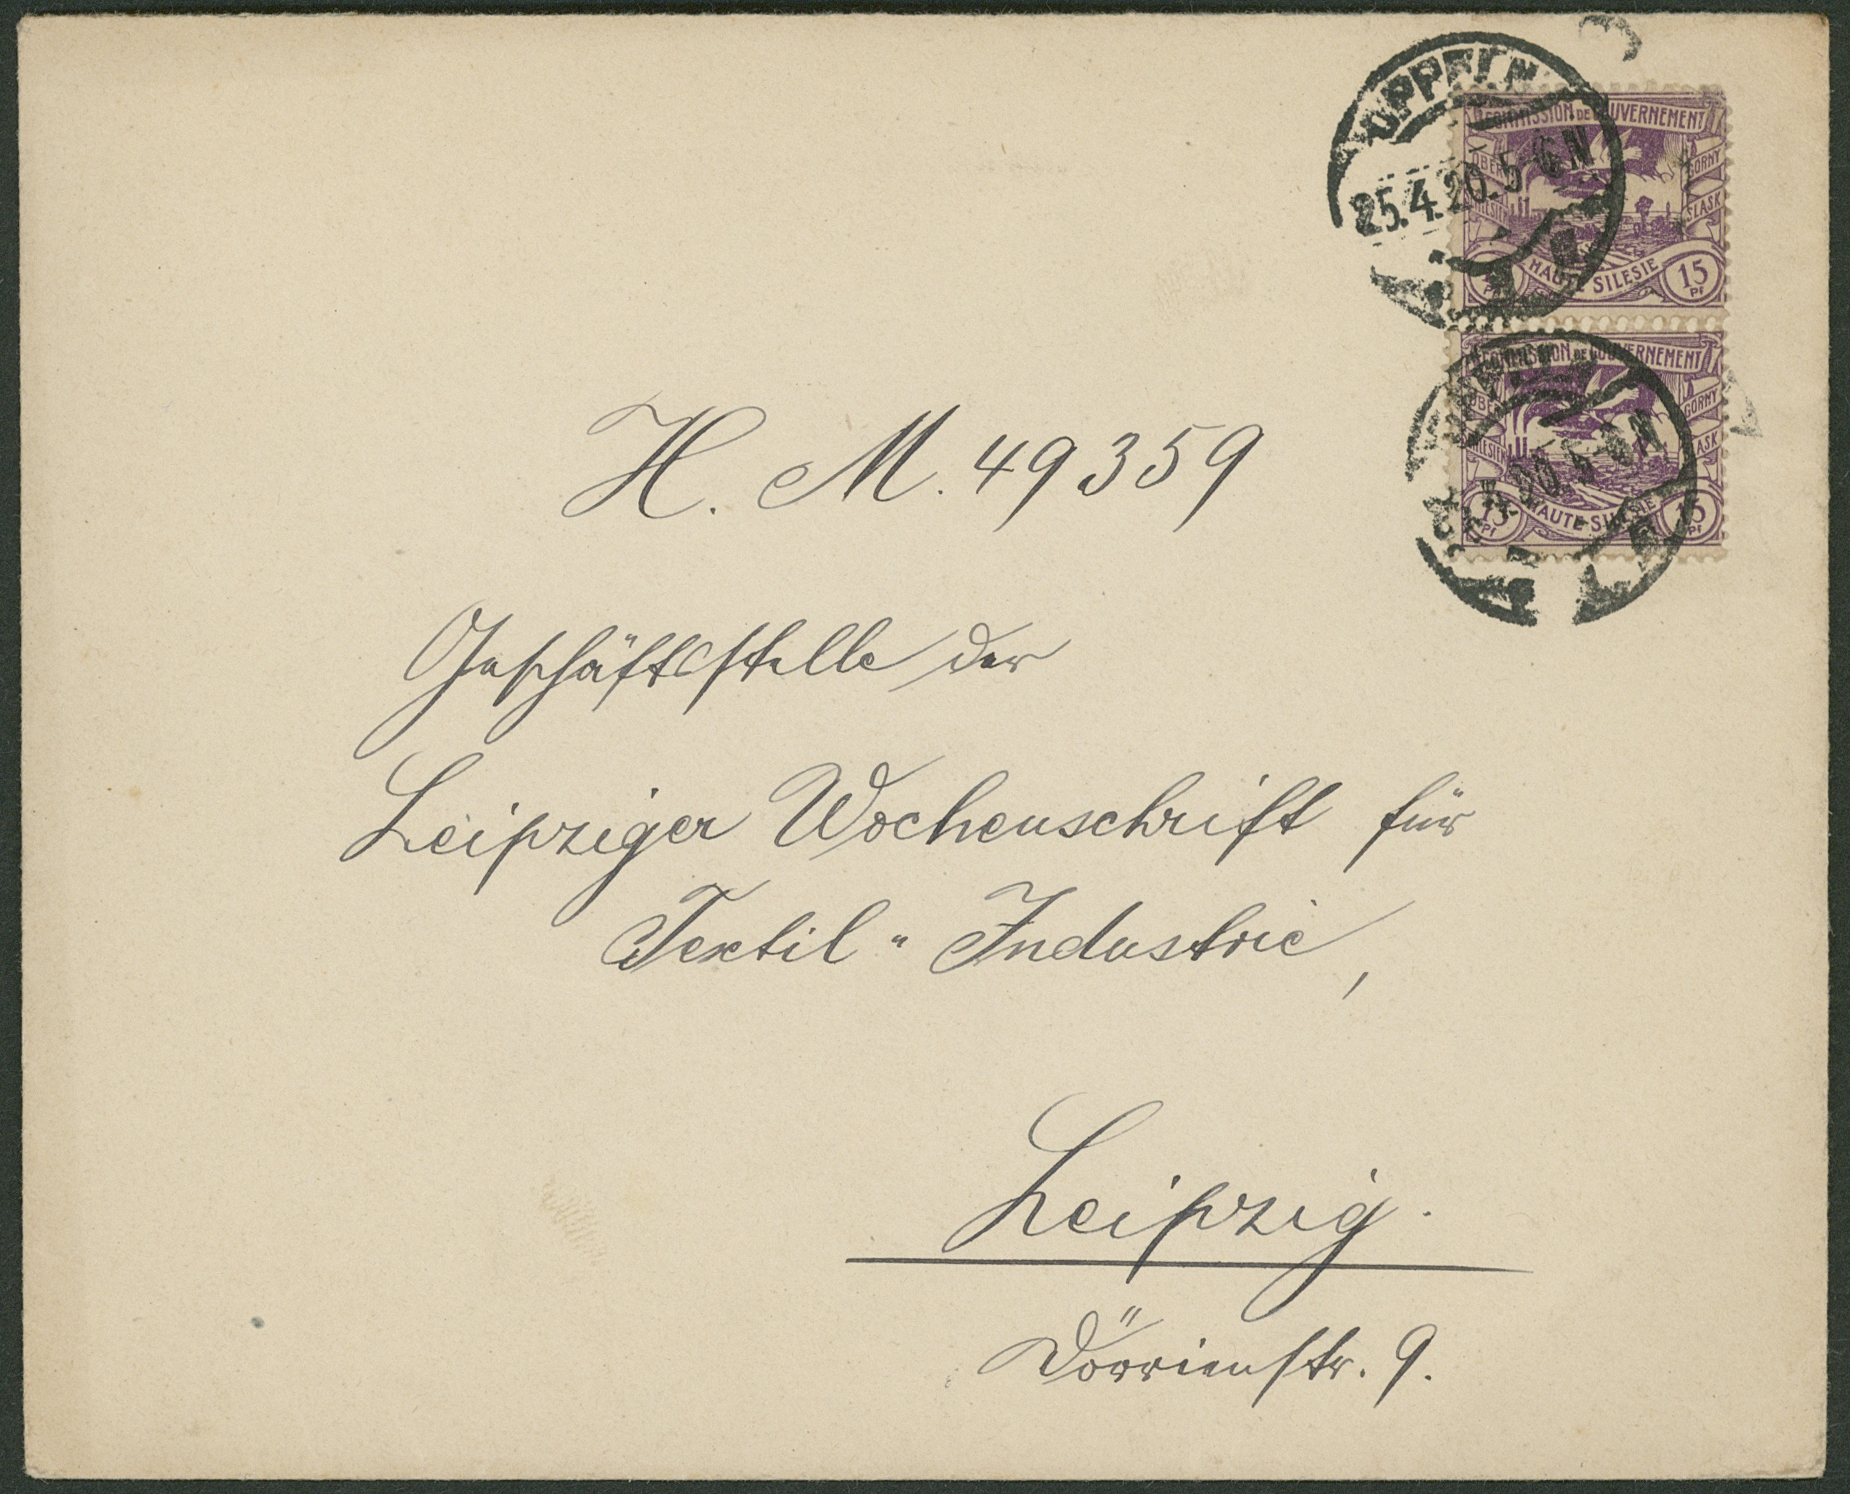 OPPELN
25.4.20.5-6N
COMMISSION DE GOUVERNEMENT
OBER
SCHLESIEN
GORNY
SLASK
HAUTE SILESIE
15
Pf
COMMISSION DE GOUVERNEMENT
OBER
SCHLESIEN
GORNY
SLASK
15
Pf
HAUTE SILESIE
15
Pf
H. M. 49359
Geschäftsstelle der
Leipziger Wochenschrift für
Textil-Industrie,
Leipzig.
Dörrienstr. 9.